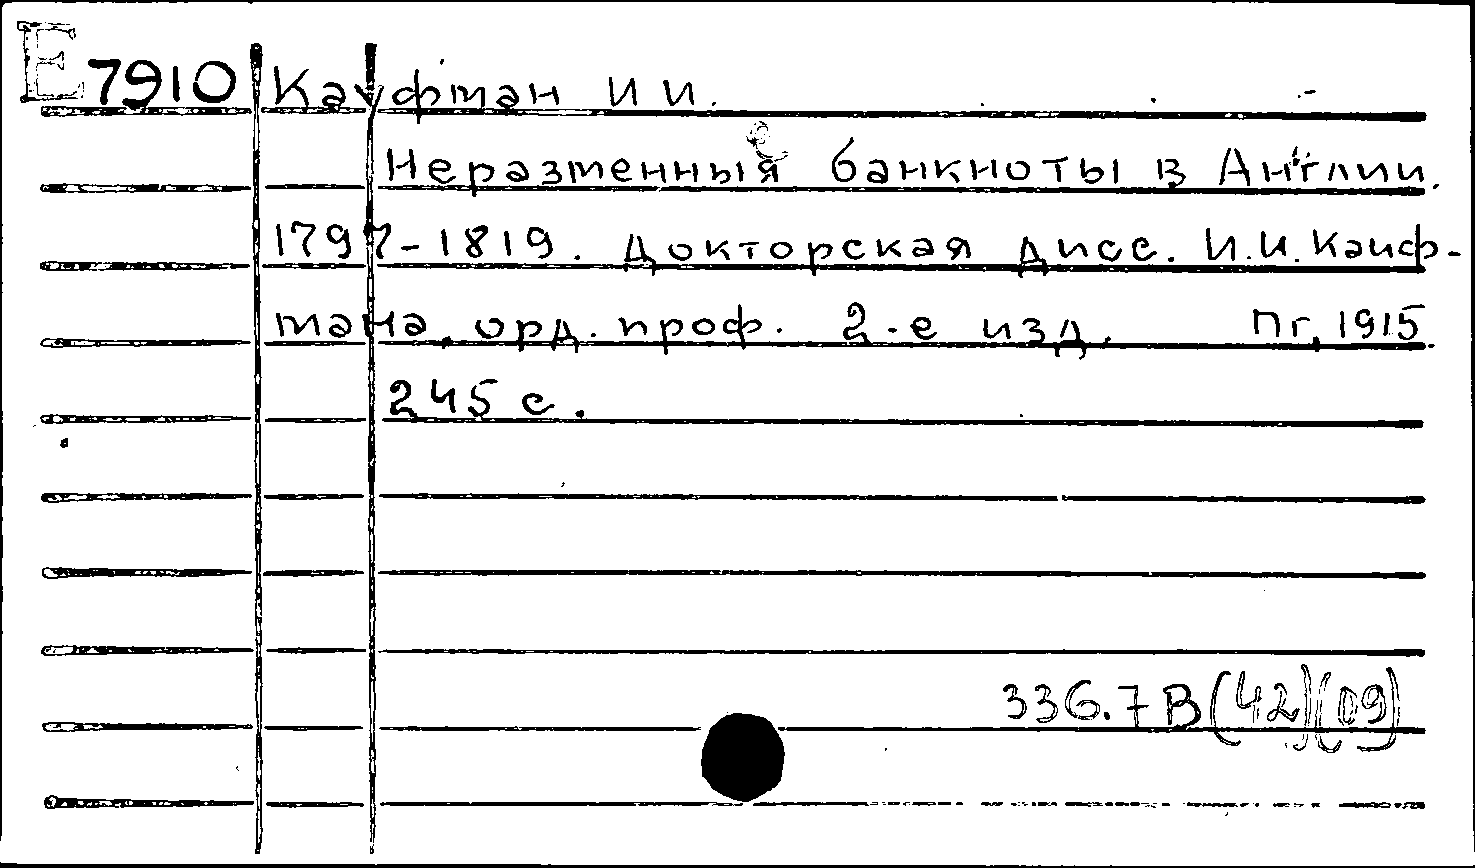 Е 7910 Кауфман И И.
Неразменныя банкноты в Англии.
1797-1819. Докторская дисс. И.И. Кауф-
мана, орд. проф. 2-е изд. Пг, 1915.
245 с.
336.7В(42)(09)